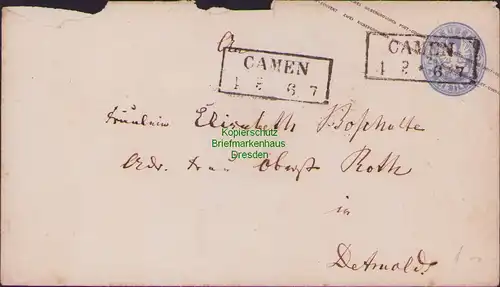 An
CAMEN
1 2 6 7
CAMEN
1 2 6 7
Fräulein Elisabeth Boshulte
Kopierschutz
Briefmarkenhaus
Dresden
Adr. Frau Oberst Roth
in
Detmold